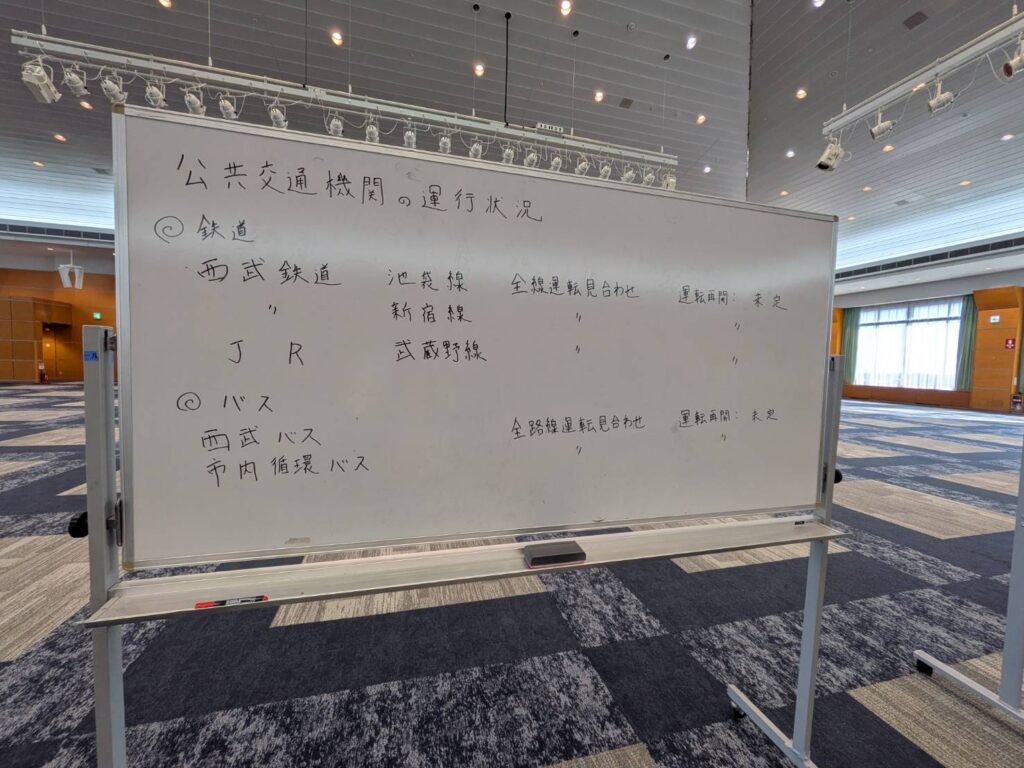 公共交通機関の運行状況
◎ 鉄道
西武鉄道 池袋線 全線運転見合わせ 運転再開：未定
〃 新宿線 〃 〃
JR 武蔵野線 〃 〃
◎ バス
西武バス 全路線運転見合わせ 運転再開：未定
市内循環バス 〃 〃